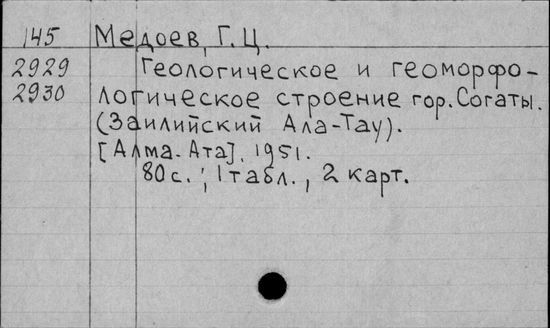 145 Медоев, Г.Ц.
2929 Геологическое и геоморфо-
2930 логическое строение гор. Согаты.
(Заилийский Ала-Тау).
[Алма-Ата], 1951.
80 с.; 1 табл., 2 карт.